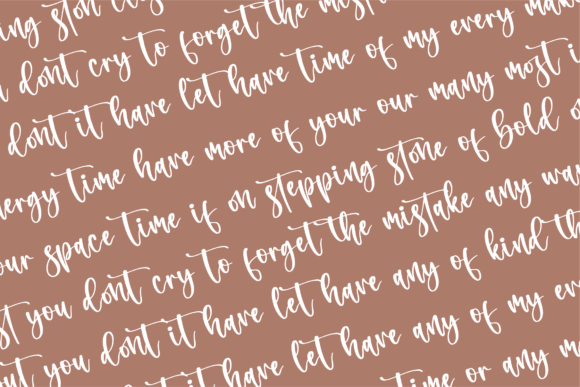 dont cry to forget the mist
dont it have let have time of my every man
nergy time have more of your our many most i
our space time if on stepping stone of bold o
st you dont cry to forget the mistake any wa
out you dont it have let have any of kind th
dont it have let have any of my eve
time or any m